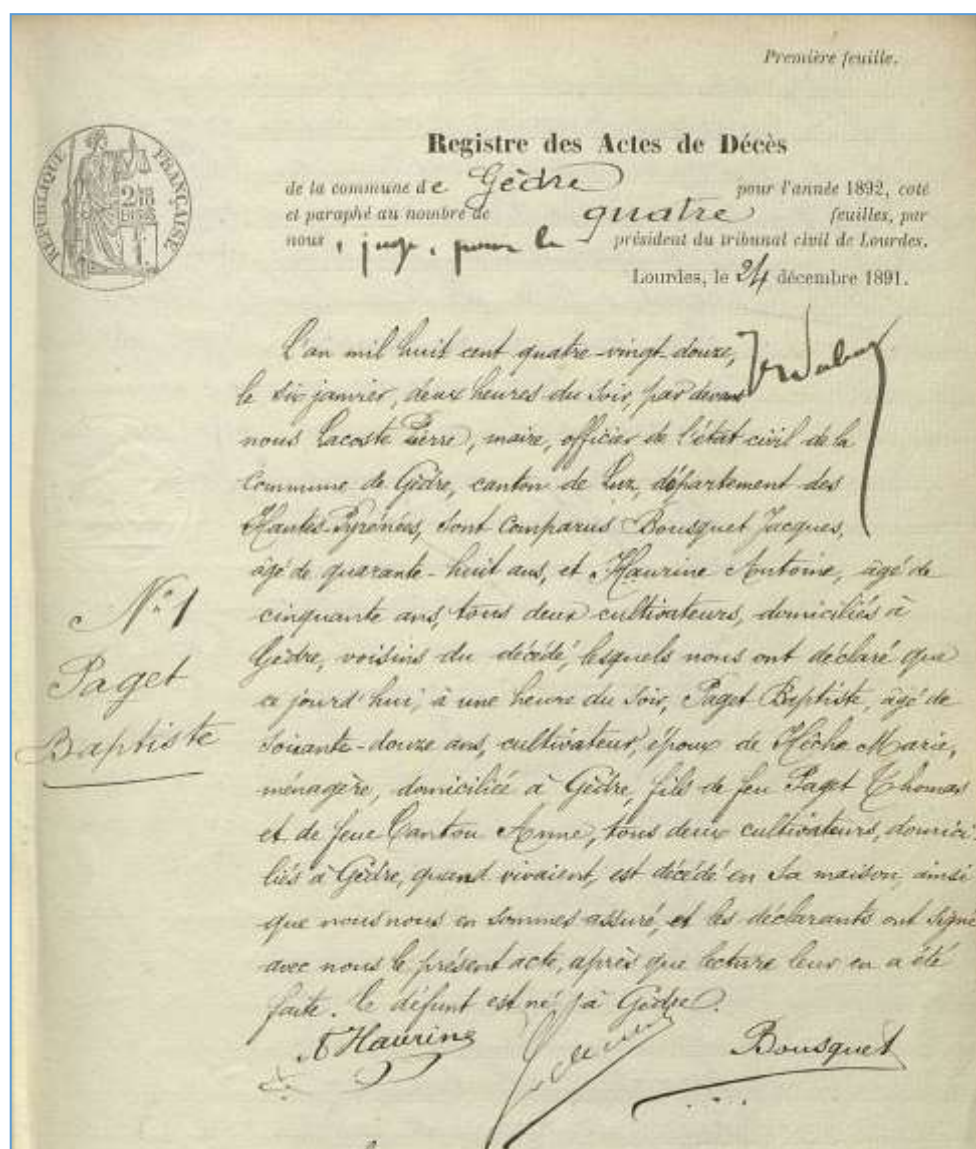 Première feuille.
RÉPUBLIQUE FRANÇAISE
Registre des Actes de Décès
de la commune de Gèdre pour l'année 1892, coté
et paraphé au nombre de quatre feuilles, par
nous, juge, pour le président du tribunal civil de Lourdes.
Lourdes, le 24 décembre 1891.
L'an mil huit cent quatre-vingt-douze,
le six janvier, deux heures du soir, par devant
nous Lacoste Pierre, maire, officier de l'état civil de la
Commune de Gèdre, canton de Luz, département des
Hautes-Pyrénées, sont comparus Bousquet Jacques,
âgé de quarante-huit ans, et Haurine Antoine, âgé de
cinquante ans, tous deux cultivateurs, domiciliés à
Gèdre, voisins du décédé, lesquels nous ont déclaré que
ce jourd'hui, à une heure du soir, Paget Baptiste, âgé de
soixante-douze ans, cultivateur, époux de Hèche Marie,
ménagère, domiciliée à Gèdre, fils de feu Paget Thomas
et de feue Cantou Anne, tous deux cultivateurs, domici-
liés à Gèdre, quand vivaient, est décédé en sa maison, ainsi
que nous nous en sommes assuré, et les déclarants ont signé
avec nous le présent acte, après que lecture leur en a été
faite. Le défunt est né à Gèdre.
N° 1
Paget
Baptiste
A Haurine
Bousquet